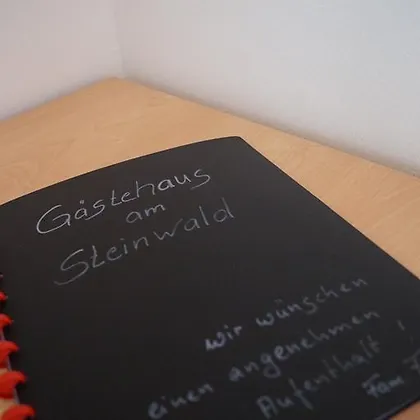 Gästehaus
am
Steinwald
wir wünschen
einen angenehmen
Aufenthalt !
Fam